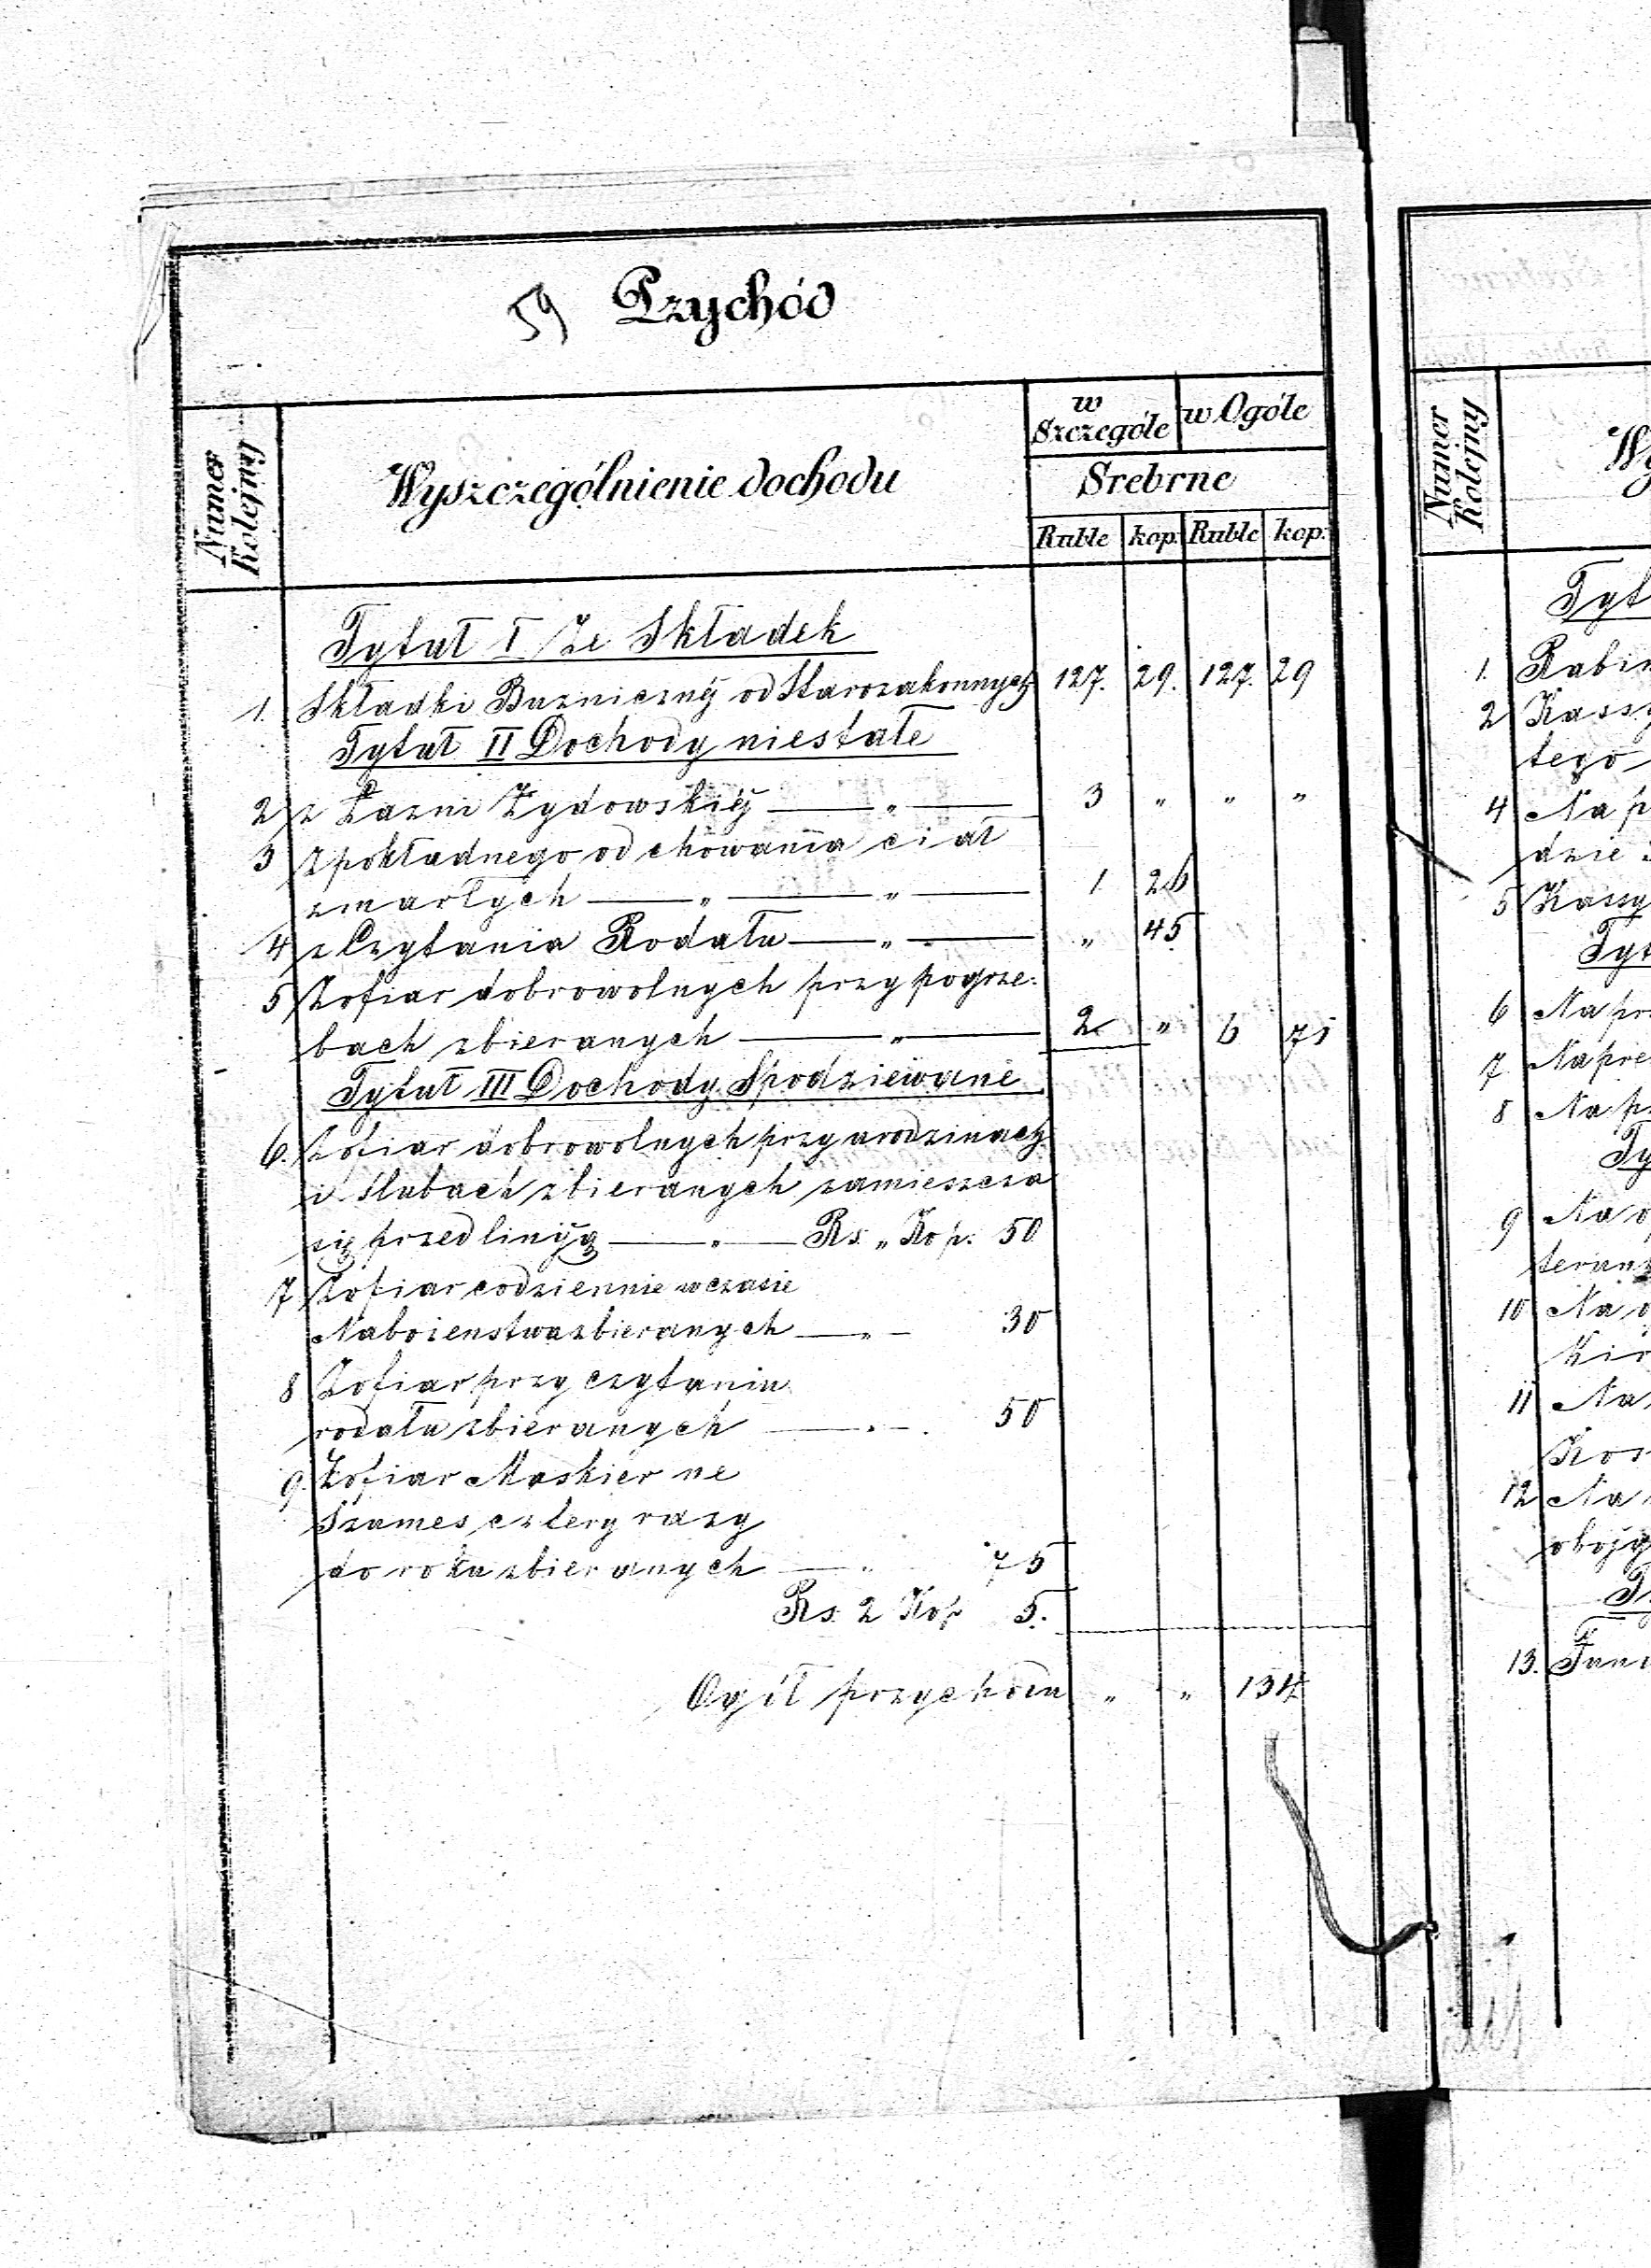 59 Przychód
Numer Kolejny
Wyszczególnienie dochodu
w Szczególe
w Ogóle
Srebrne
Ruble kop. Ruble kop.
Tytuł I Ze Składek
1. Składki Bużniczny od Starozakonnych 127. 29. 127. 29
Tytuł II Dochody niestałe
2 z Łazni Żydowskiéy — „ — 3 „ „ „
3 z pokładnego od chowania ciał
zmarłych — „ — „ — 1 26
4 z Czytania Rodału — „ — „ 45
5 Z ofiar dobrowolnych przy pogrze-
bach zbieranych — „ — 2 „ 6 71
Tytuł III Dochody Spodziewane
6. Z ofiar dobrowolnych przy urodzinach
i slubach zbieranych zamieszcza
się przed liniją — „ — Rs. „ Kop. 50
7 Z ofiar codziennie w czasie
Nabożenstwa zbieranych — „ — 30
8 Z ofiar przy czytaniu
rodału zbieranych — „ — 50
9. Z ofiar Maskier ne
Szames cztery razy
do roku zbieranych — „ 75
Rs. 2 Kop 5.
Ogół przychodu „ „ 134
Numer Kolejny
Wy
Tyt
1. Rabin
2 Kassy
tego
4 Na p
dzie
5 Kassy
Tyt
6 Na prz
7 Na pre
8 Na p
Ty
9 Na o
terun
10 Na o
Kir
11 Na
Kos
12 Na
obojg
13.